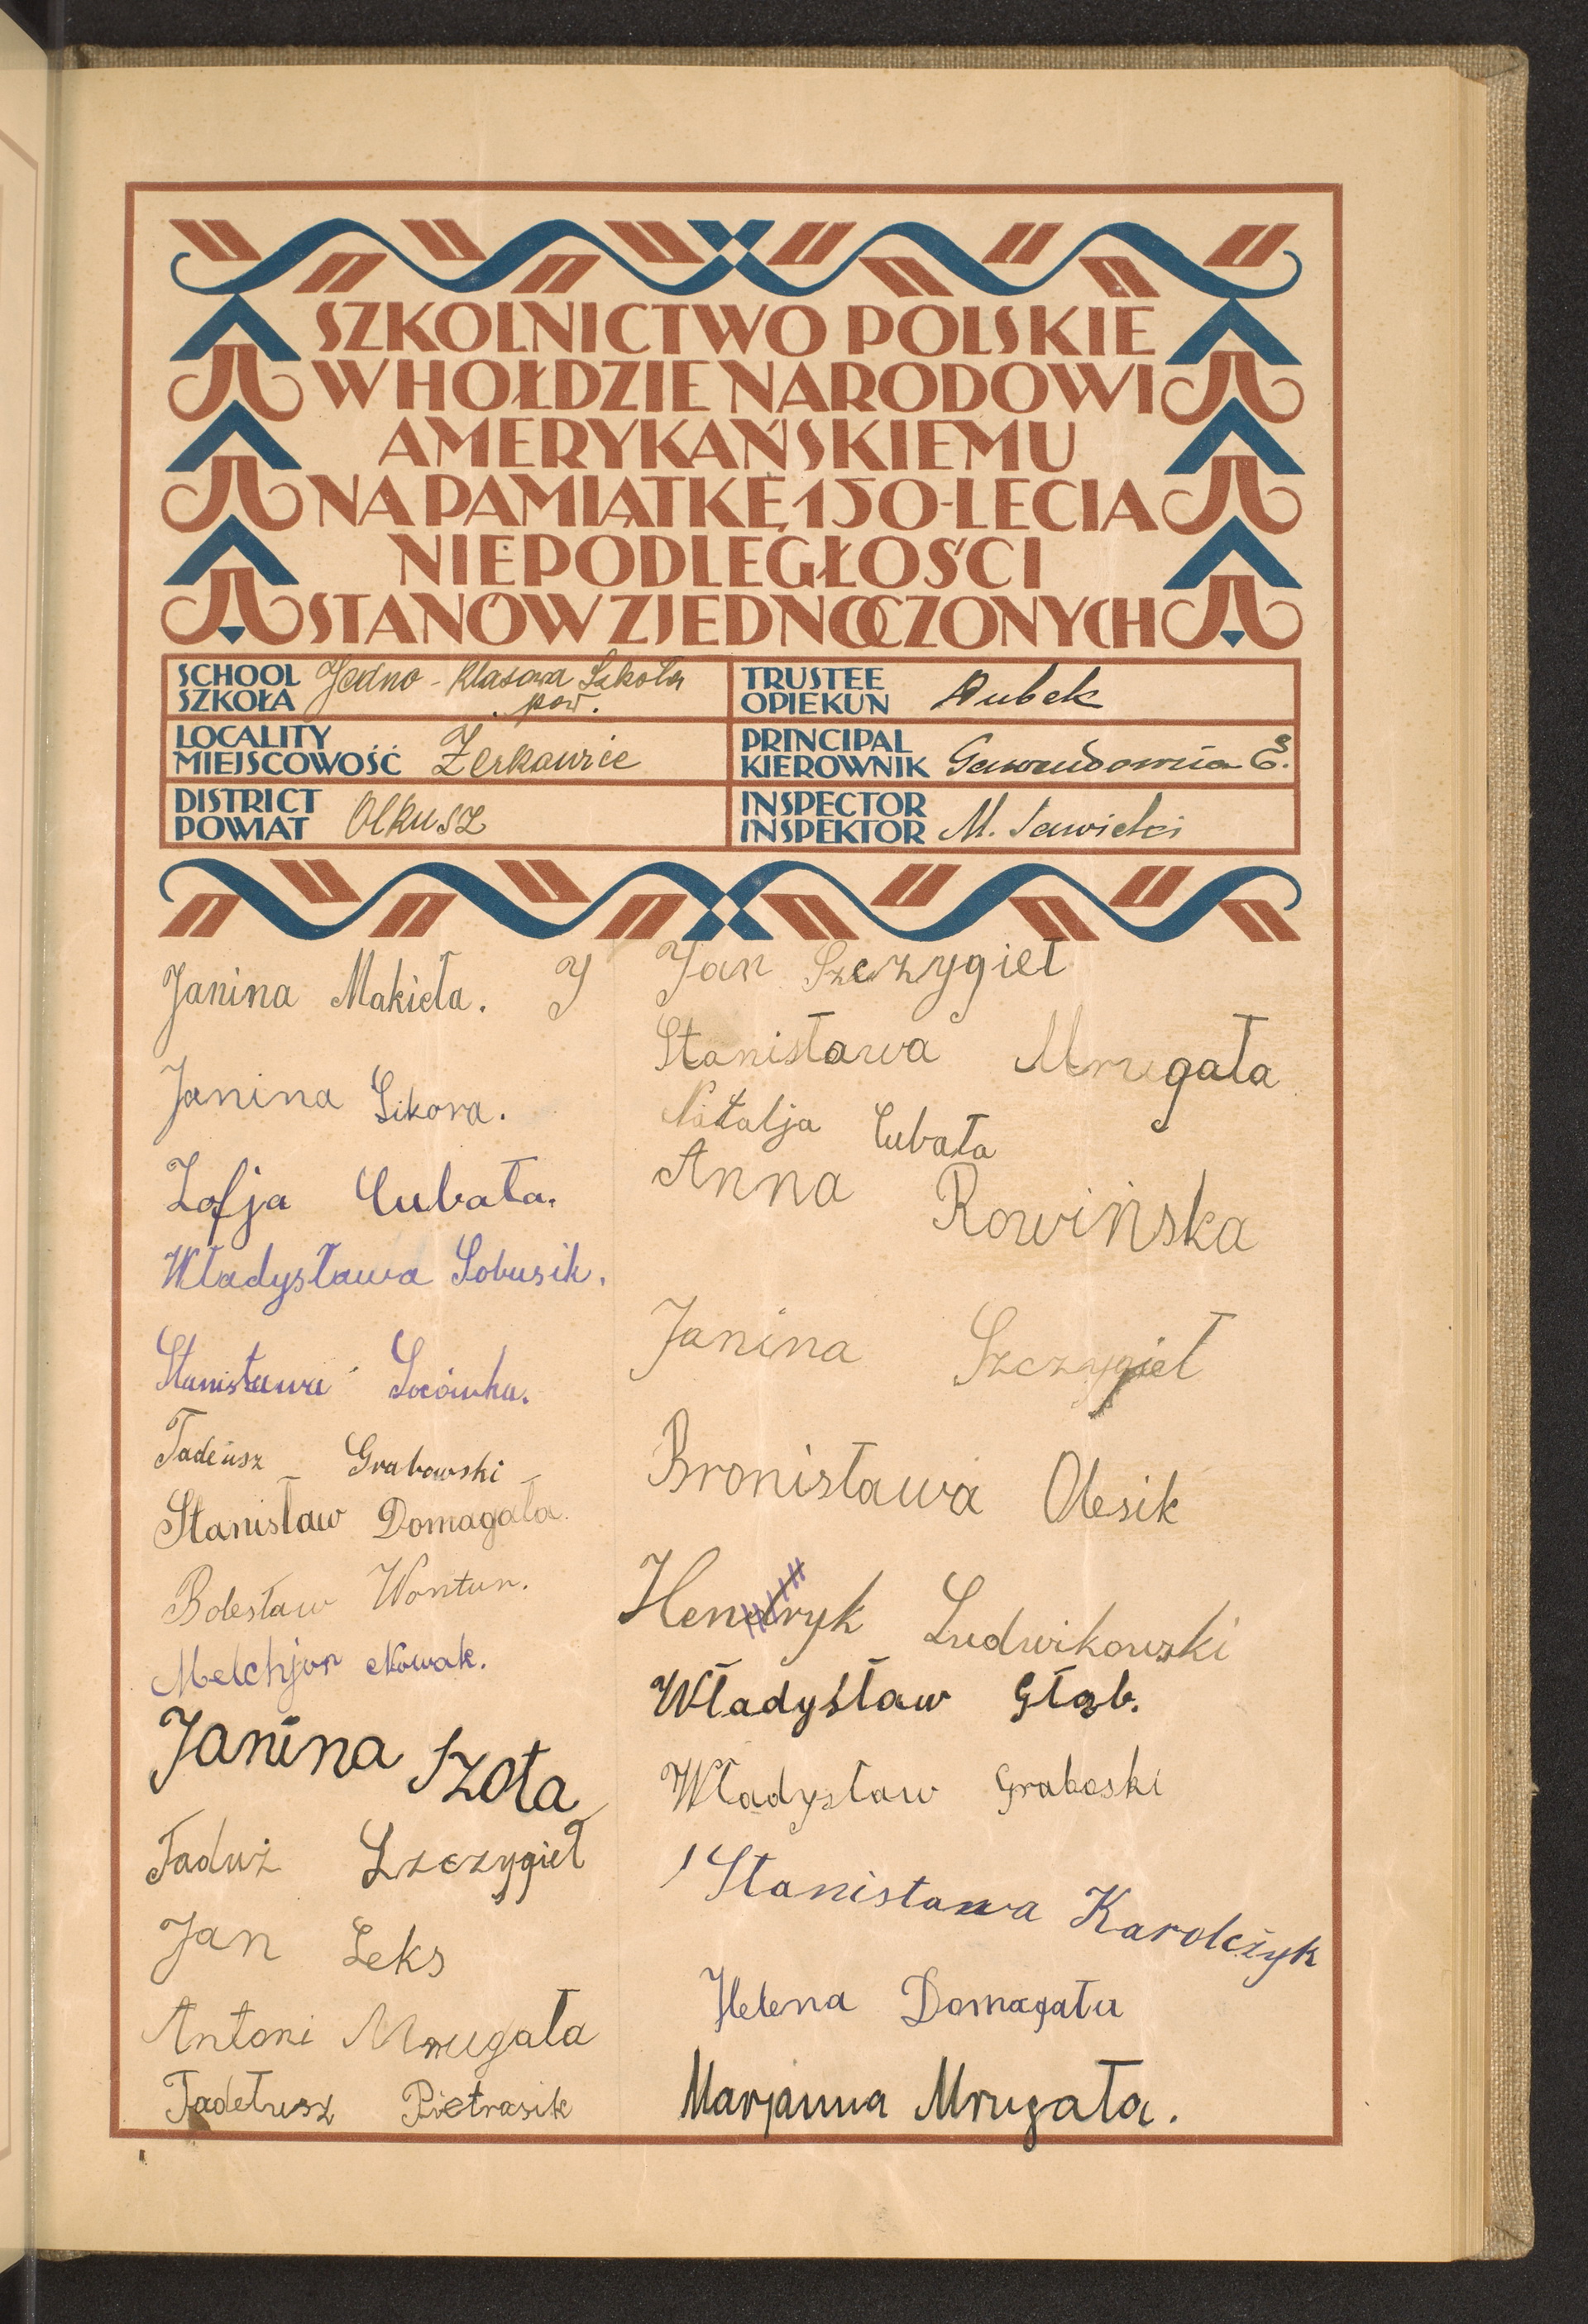 SZKOLNICTWO POLSKIE
W HOŁDZIE NARODOWI
AMERYKAŃSKIEMU
NA PAMIĄTKĘ 150-LECIA
NIEPODLEGŁOŚCI
STANÓW ZJEDNOCZONYCH
SCHOOL
SZKOŁA
Jedno - klasowa Szkoła
pow.
TRUSTEE
OPIEKUN
Dubek
LOCALITY
MIEJSCOWOŚĆ
Żerkowice
PRINCIPAL
KIEROWNIK
E.
DISTRICT
POWIAT
Olkusz
INSPECTOR
INSPEKTOR
M. Sawicki
Janina Makieła. J
Janina Sikora.
Zofja Cubała.
Władysława Sobusik.
Stanisława Socówka.
Tadeusz Grabowski
Stanisław Domagała.
Bolesław Wontun.
Melchjor Nowak.
Janina Szota
Taduż Szczygieł
Jan Leks
Antoni Mrugała
Tadełusz Pietrasik
Jan Szczygieł
Stanisława Mrugała
Natalja Cubała
Anna Rowińska
Janina Szczygieł
Bronisława Olesik
Hendryk Ludwikowski
Władysław Głąb.
Władysław Graboski
Stanisława Karolczyk
Helena Domagała
Marjanna Mrugała.